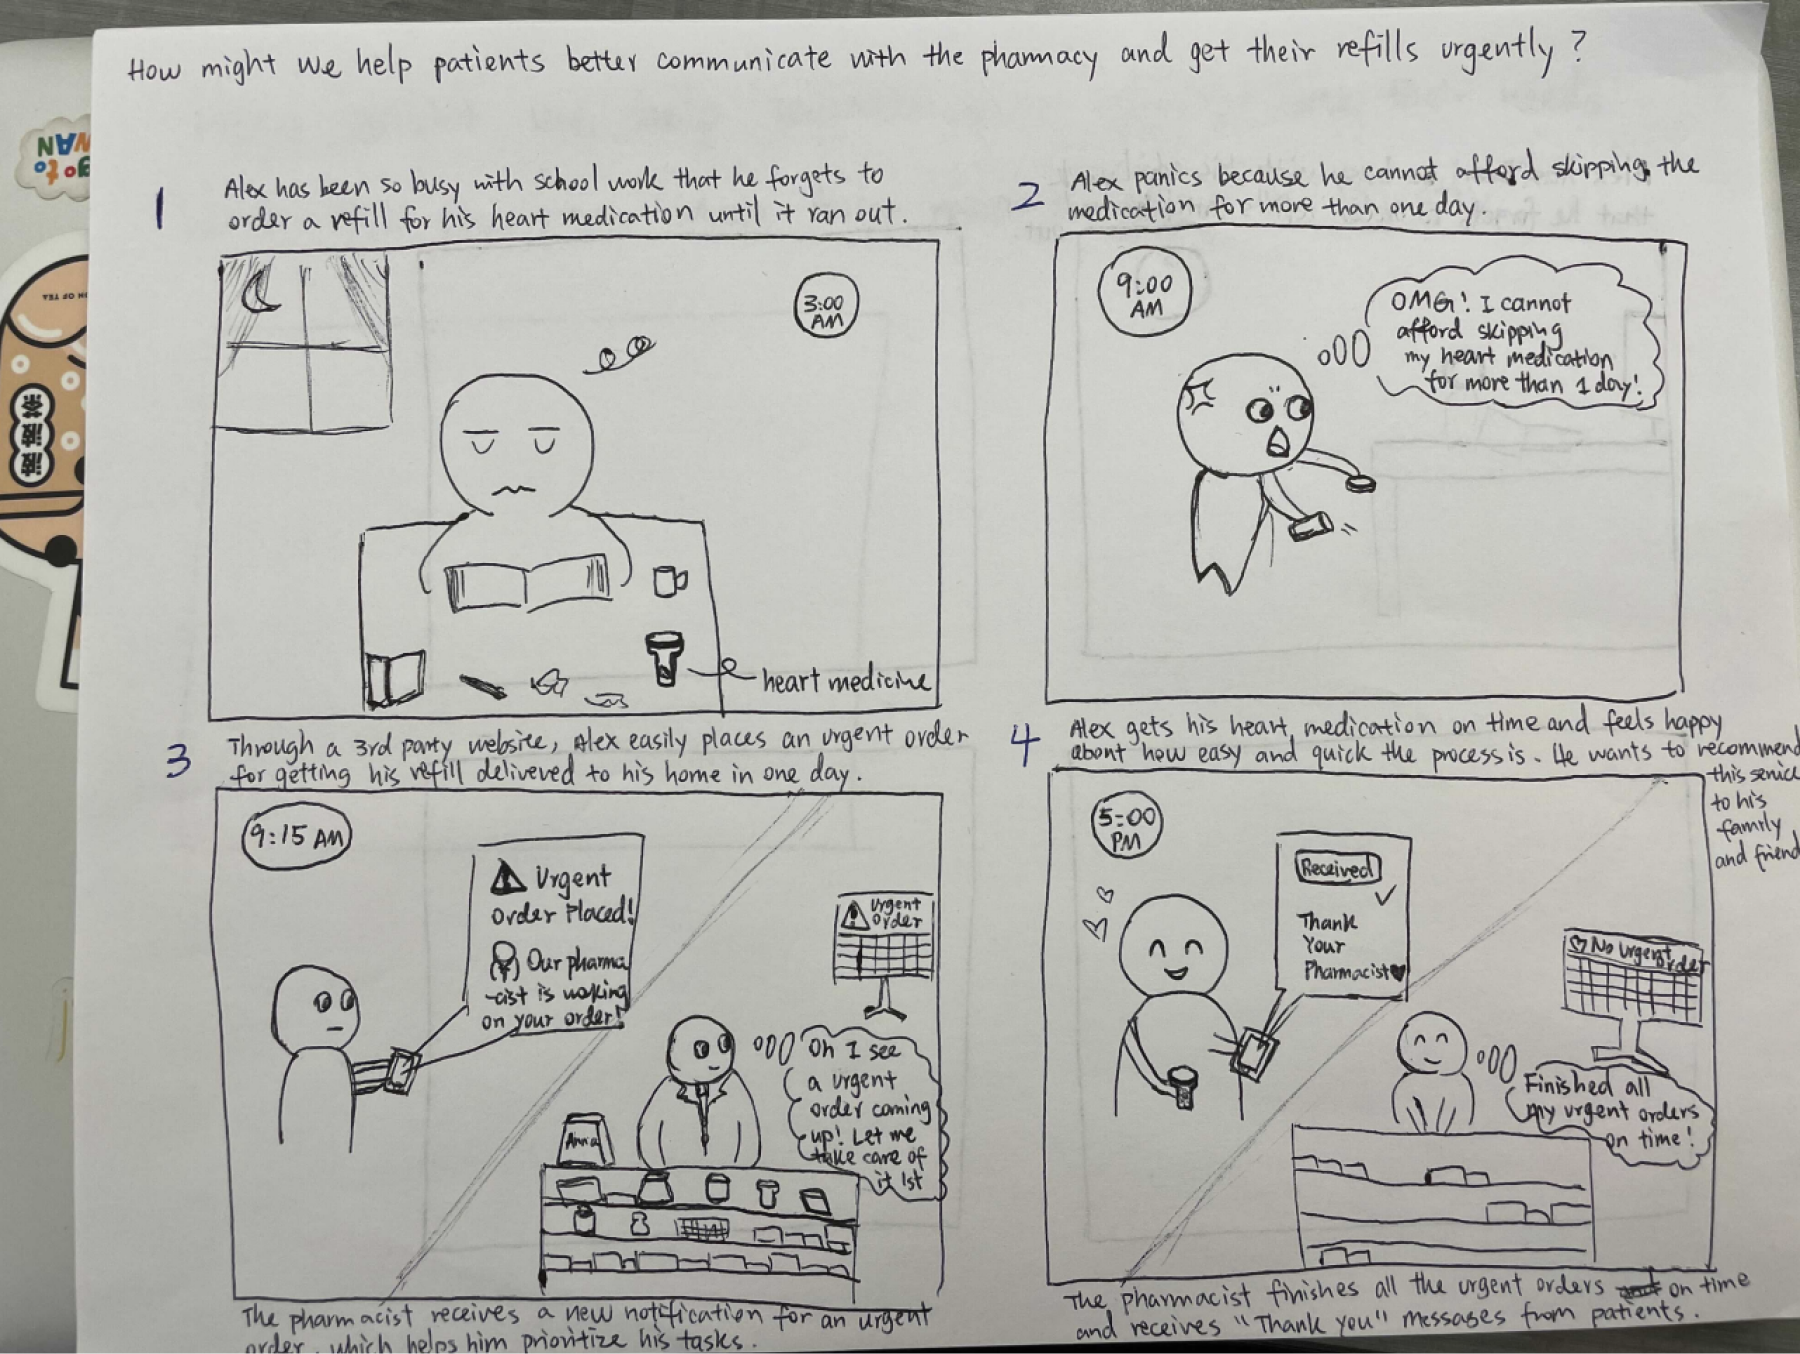 How might we help patients better communicate with the pharmacy and get their refills urgently?
1
Alex has been so busy with school work that he forgets to
order a refill for his heart medication until it ran out.
3:00
AM
heart medicine
2
Alex panics because he cannot afford skipping the
medication for more than one day.
9:00
AM
OMG! I cannot
afford skipping
my heart medication
for more than 1 day!
3
Through a 3rd party website, Alex easily places an urgent order
for getting his refill delivered to his home in one day.
9:15 AM
Urgent
Order Placed!
Our pharma
-cist is working
on your order!
Urgent
Order
Oh I see
a urgent
order coming
up! Let me
take care of
it 1st
Anna
The pharmacist receives a new notification for an urgent
order, which helps him prioritize his tasks.
4
Alex gets his heart medication on time and feels happy
about how easy and quick the process is. He wants to recommend
this service
to his
family
and friend
5:00
PM
Received
Thank
Your
Pharmacist
No Urgent
order
Finished all
my urgent orders
on time!
The pharmacist finishes all the urgent orders on time
and receives "Thank you" messages from patients.
go to
WAN
茶
波
波